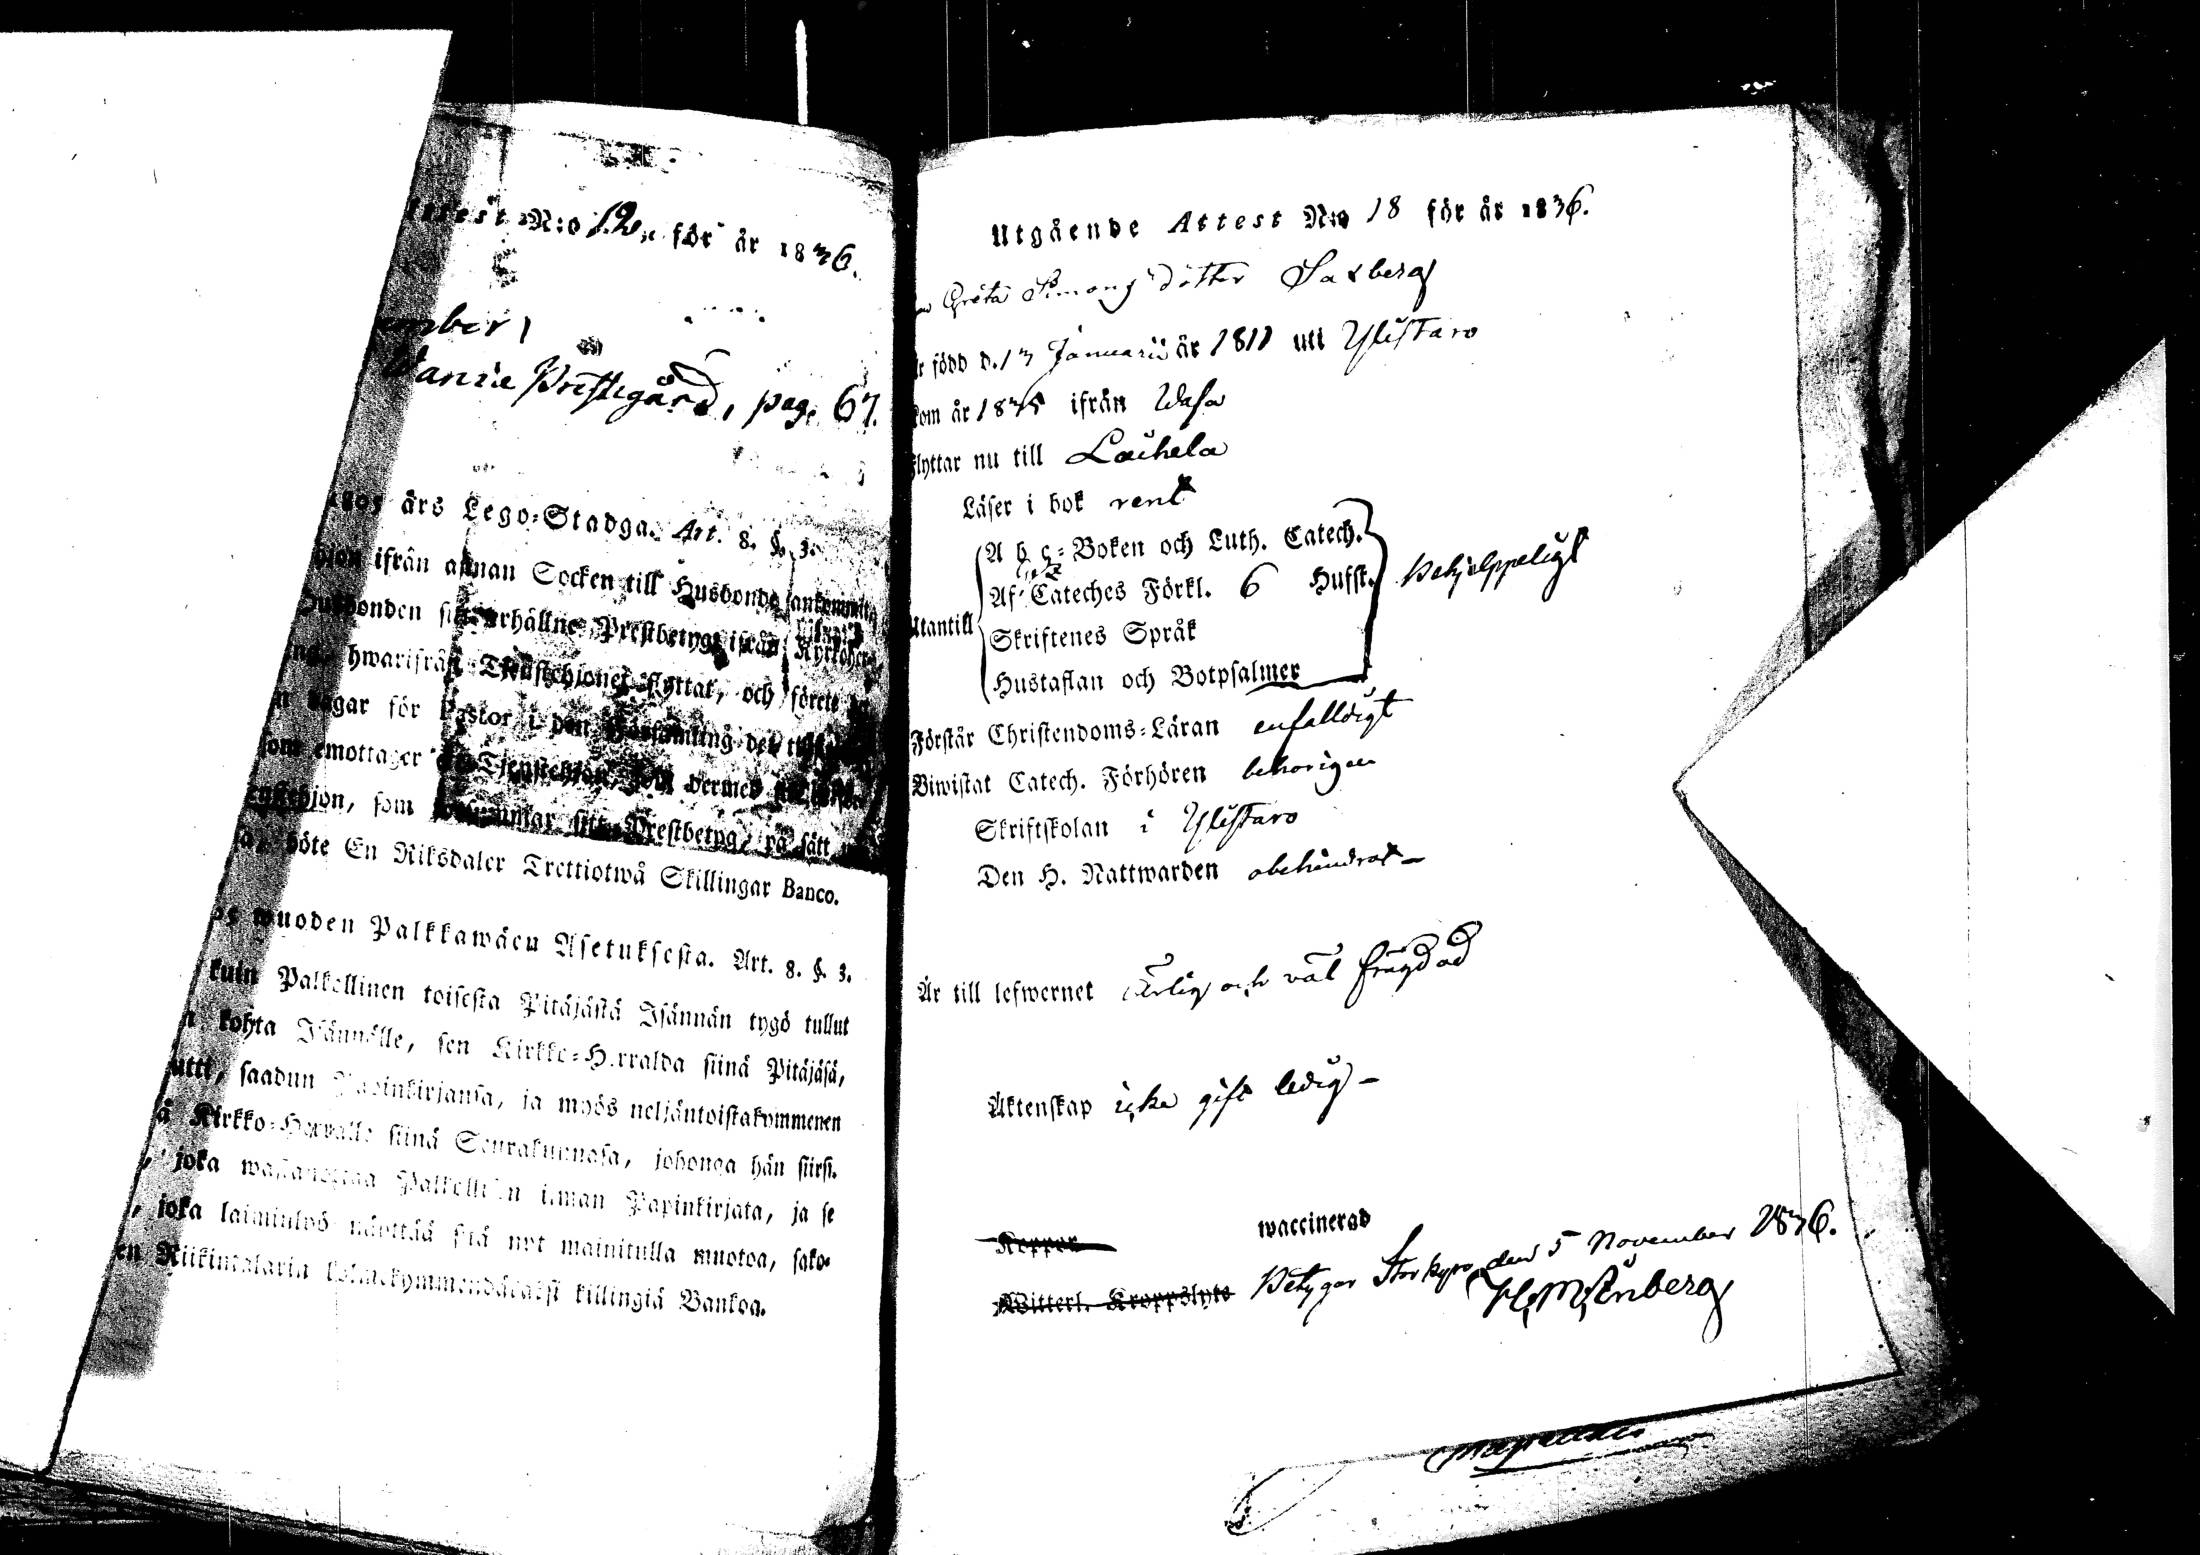 Attest N:o 12, för år 1836.
ember,
Wanrie Prestegård, pag. 67.
1805 års Lego-Stadga. Art. 8. §. 3.
hjon ifrån annan Socken till Husbonde ankommit,
Husbonden sitt erhållne Prestbetyg ifrån Kyrkoher-
hwarifrån Tjenstehjonet flyttat, och förete
dagar för Pastor i den Församling det
som emottager Tjenstehjon, som dermed
Tjenstehjon, som försummar sitt Prestbetyg, på sätt
böte En Riksdaler Trettiotwå Skillingar Banco.
wuoden Palkkawäen Asetuksesta. Art. 8. §. 3.
kuin Palkollinen toisesta Pitäjästä Isännän tygö tullut
kohta Isännälle, sen Kirkko-Herralda siinä Pitäjäsä,
saadun Papinkirjansa, ja myös neljäntoistakymmenen
Kirkko-Herralle siinä Seurakunnasa, johonga hän siirs.
joka wastanottaa Palkollisen ilman Papinkirjata, ja se
joka laiminlyö näyttää sitä nyt mainitulla muotoa, sako-
en Riikintalaria kolmekymmendäkaksi killingiä Bankoa.
Utgående Attest N:o 18 för år 1836.
Greta Simons dotter Saxberg
är född d. 13 Januarii år 1811 uti Ylistaro
kom år 1835 ifrån Wasa
flyttar nu till Laihela
Läser i bok rent
Utantill
A b c-Boken och Luth. Catech.
Af Cateches Förkl. 6 Hufst.
Skriftenes Språk
Hustaflan och Botpsalmer
behjelppeligt
Förstår Christendoms-Läran enfalldigt
Biwistat Catech. Förhören behörigen
Skriftskolan i Ylistaro
Den H. Nattwarden obehindrat –
Är till lefwernet ärlig och väl frägdad
Äktenskap icke gift ledig –
Koppor waccinerad
Witterl. Kroppslyte Betygar Storkyro den 5 November 1836.